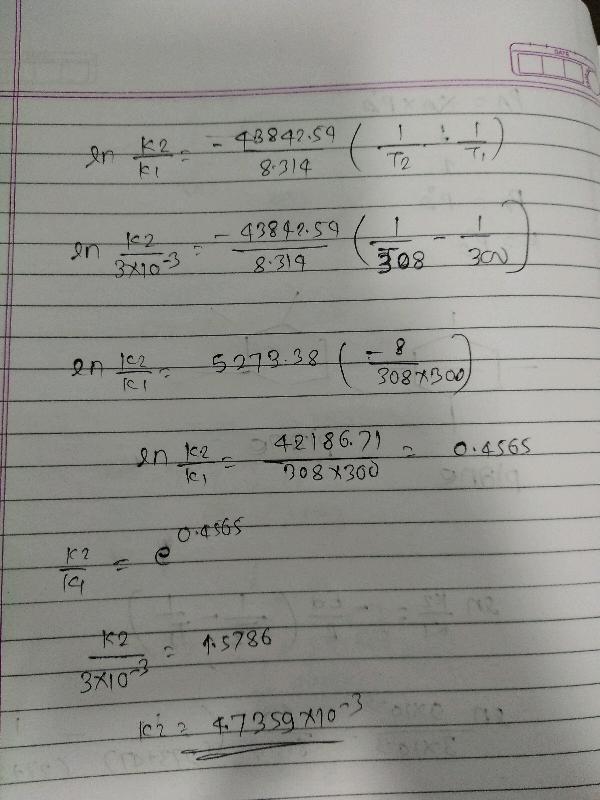 DATE
ln K2/K1 = -43842.59/8.314 (1/T2 - 1/T1)
ln K2/3×10^-3 = -43842.59/8.314 (1/308 - 1/300)
ln K2/K1 = 5273.38 (-8/308×300)
ln K2/K1 = 42186.71/308×300 = 0.4565
K2/K1 = e^0.4565
K2/3×10^-3 = 1.5786
K2 = 4.7359×10^-3